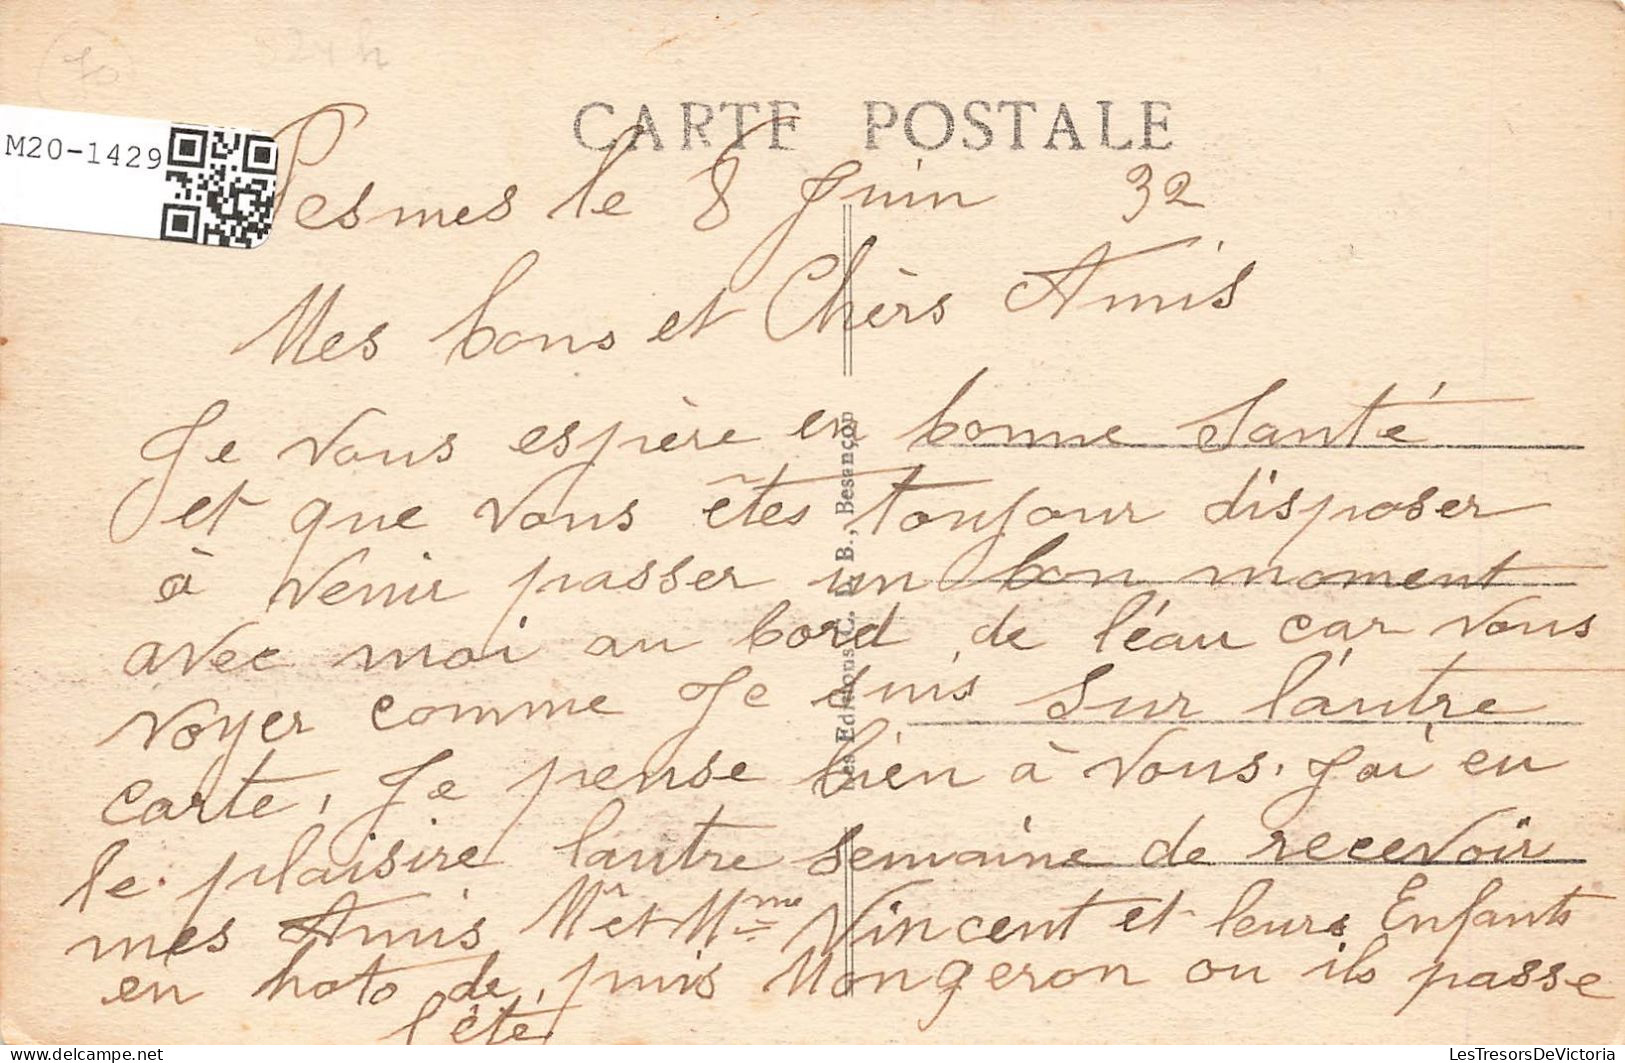 70
M20-1429
CARTE POSTALE
Pesmes le 8 Juin 32
Mes bons et Chèrs Amis
Je vous espère en bonne Santé
et que vous êtes toujour disposer
à venir passer un bon moment
avec moi au bord de l'éau car vous
voyer comme Je suis sur l'autre
carte, Je pense bien à vous. J'ai eu
le plaisire l'autre semaine de recevoir
mes Amis Mr et Mme Vincent et leurs Enfants
en hoto de puis Mongeron ou ils passe
l'été
Les Editions C. L. B., Besançon
LesTresorsDeVictoria
delcampe.net